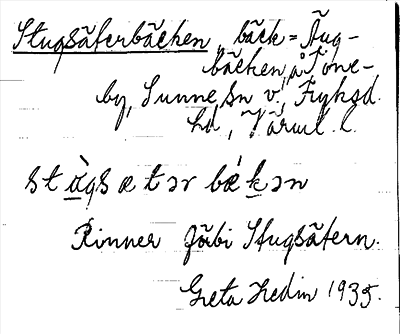 Stugsäterbäcken, bäck = Äng-
bäcken, å Tone-
by, Sunne sn v., Fryksd.
hd, Värml. l.
stɑ̀gsætər bǽkən
Rinner förbi Stugsätern.
Greta Hedin 1935.